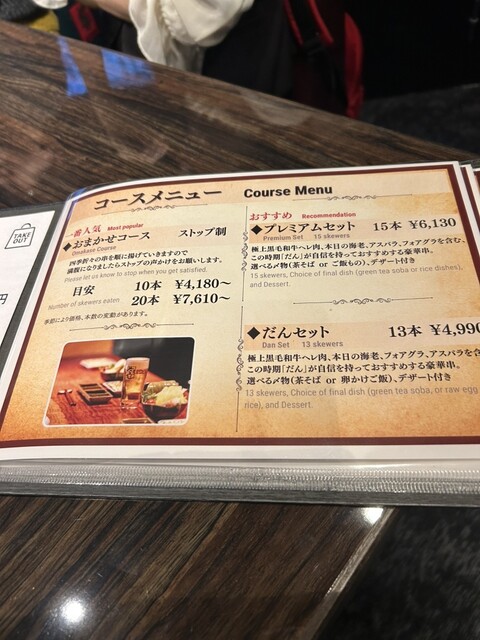 コースメニュー Course Menu
TAKE OUT
円
一番人気 Most popular
◆おまかせコース ストップ制
Omakase Course
四季折々の串を順に揚げていきますので
満腹になりましたらストップの声かけをお願いします。
Please let us know to stop when you get satisfied.
目安 10本 ¥4,180~
Number of skewers eaten 20本 ¥7,610~
季節により価格、本数の変動があります。
おすすめ Recommendation
◆プレミアムセット 15本 ¥6,130
Premium Set 15 skewers
極上黒毛和牛ヘレ肉、本日の海老、アスパラ、フォアグラを含む、
この時期「だん」が自信を持っておすすめする豪華串。
選べる〆物(茶そば or ご飯もの)、デザート付き
15 skewers, Choice of final dish (green tea soba or rice dishes),
and Dessert.
◆だんセット 13本 ¥4,990
Dan Set 13 skewers
極上黒毛和牛ヘレ肉、本日の海老、フォアグラ、アスパラを含
この時期「だん」が自信を持っておすすめする豪華串。
選べる〆物(茶そば or 卵かけご飯)、デザート付き
13 skewers, Choice of final dish (green tea soba, or raw egg
rice), and Dessert.